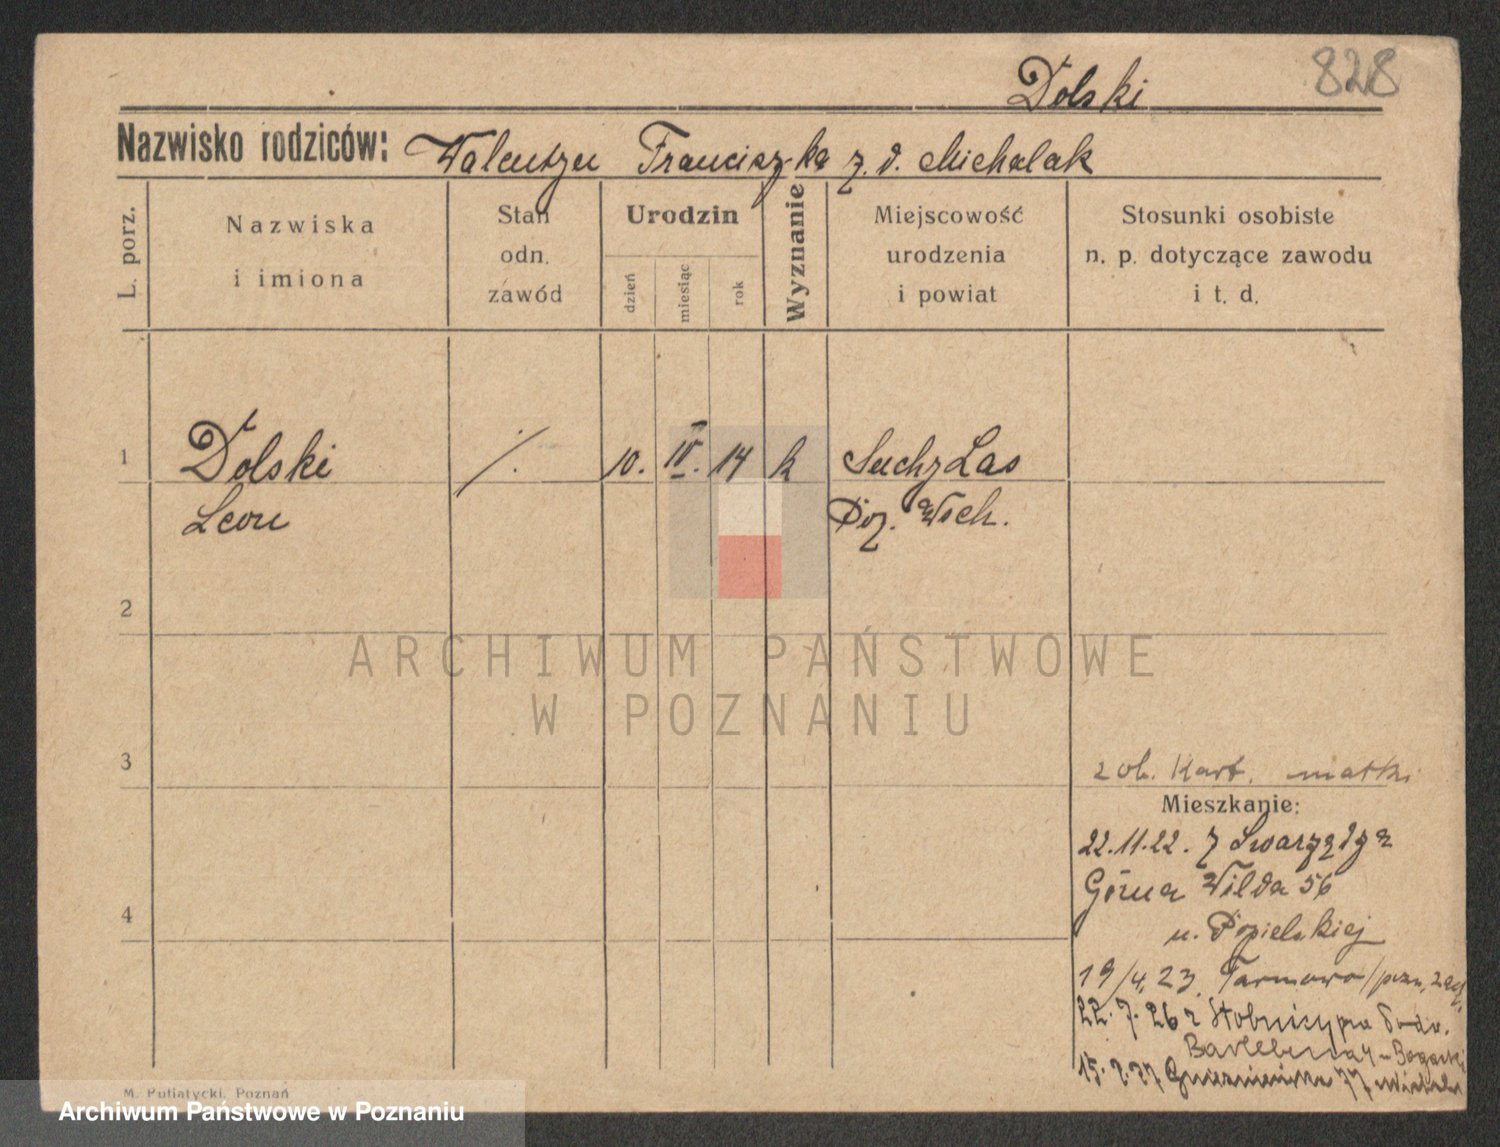 Dolski 828
Nazwisko rodziców: Walentyn Franciszka z. d. Michalak
L. porz.
Nazwiska
i imiona
Stan
odn.
zawód
Urodzin
dzień
miesiąc
rok
Wyznanie
Miejscowość
urodzenia
i powiat
Stosunki osobiste
n. p. dotyczące zawodu
i t. d.
1 Dolski 10. IV. 14 k Suchy Las
Leon Poz. Wsch.
2
ARCHIWUM PAŃSTWOWE
W POZNANIU
3
zob. Kart. matki
Mieszkanie:
22.11.22. z Swarzędza
Górna Wilda 56
u. Popielskiej
4
19/4.23. Tarnowo/pzn. zach.
22.7.26 z Stobnicy pow.
15. 27. Gnieźnieńska
M. Putiatycki, Poznań
Archiwum Państwowe w Poznaniu